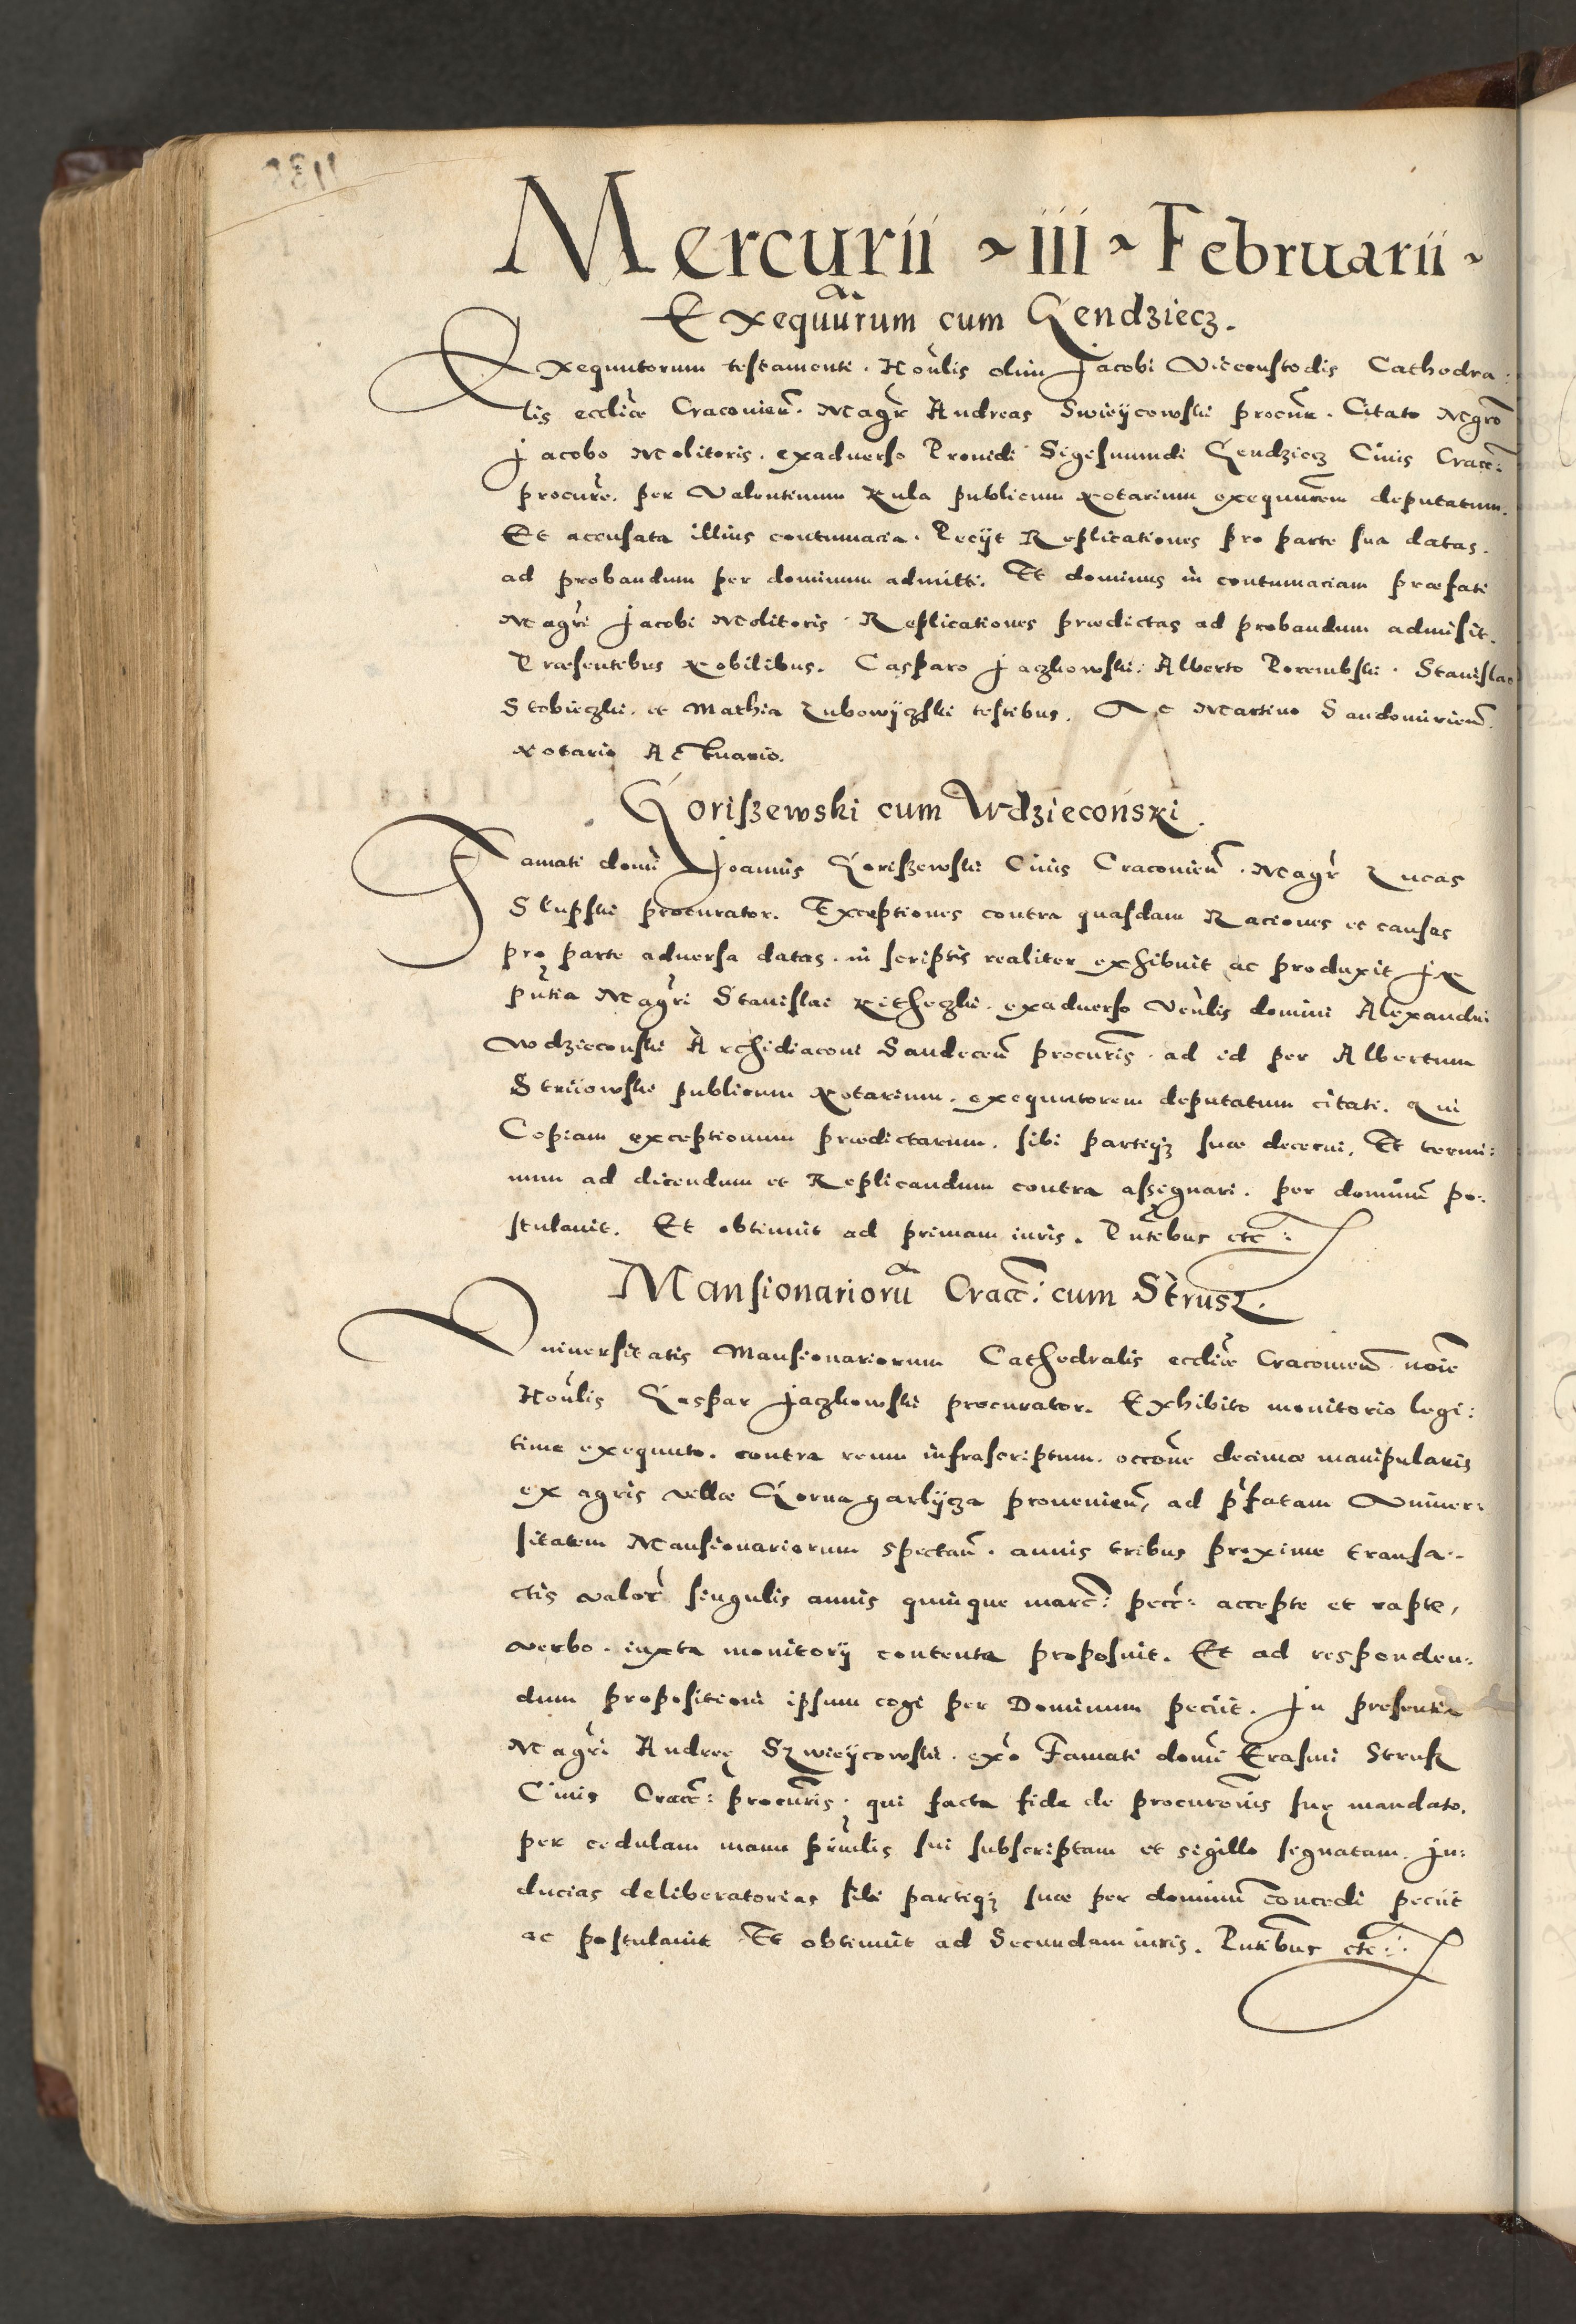 Mercurii ~ iii ~ Februarii ~
Exequūrum cum Gendziecz.
Exequutorum testamenti. Hoñlis olim Jacobi Vicecustodis Cathedra:
lis ecclīae Cracovieñ. Magr̃ Andreas Swieÿcowski procũr. Citato Mgrō
Jacobo Molitoris. exadverso Providi Sigismundi Gendziecz Civis Cracc:
procurẽ. per Valentinum Kula publicum Notarium exequūrem deputatum.
Et accusata illius contumacia. Peciit Replicationes pro parte sua datas.
ad probandum per dominum admitti. Et dominus in contumaciam praefati
Magr̃i Jacobi Molitoris. Replicationes praedictas ad probandum admisit.
Praesentibus Nobilibus. Casparo Jaczkowski. Alberto Porembski. Stanislao
Stobieczki. et Mathia Lubowÿczski testibus. Ac Martino Sandomirieñ.
Notario Actuario.
Goriszewski cum Wdziecoński.
Famati domi Joannis Goriszewski Civis Cracovieñ. Magr̃ Lucas
Slupski procurator. Exceptiones contra quasdam Raciones et causas
pro parte adversa datas. in scriptis realiter exhibuit ac produxit In
pñtia Magr̃i Stanislai exadverso Veñlis domini Alexandri
Wdzieconski Archidiaconi Sandeceñ procurīs. ad id per Albertum
Striiowski publicum Notarium. exequutorem deputatum citati. qui
Copiam exceptionum praedictarum. sibi partiq3 suae decerni. Et termi:
num ad dicendum et Replicandum contra assignari. per dominũ po:
stulavit. Et obtinuit ad primam iuris. Pñtibus etc:
Mansionariorũ Cracc: cum Strusz.
Universitatis Mansionariorum Cathedralis ecclīae Cracovieñ noīe
Hoñlis Gaspar Jaczkowski procurator. Exhibito monitorio legi:
time exequuto. contra reum infrascriptum. occōne decimae manipularis
ex agris villae Gorna garlÿcza provenieñ, ad p̃fatam Univer:
sitatem Mansionariorum spectañ. annis tribus proxime transa:
ctis valor̃ singulis annis quinque marc̃: pecc̃: accepte et rapte,
verbo. iuxta monitorij contenta proposuit. Et ad responden:
dum propositioni ipsum cogi per Dominum peciit. In presentia
Magr̃i Andreę Szwieÿcowski. ex̃o Famati domi Erasmi Strusz
Civis Cracc: procurīs. qui facta fide de procurōnis suę mandato.
per cedulam manu prīncilis sui subscriptam et sigillo signatam. In:
ducias deliberatorias sibi partiq3 suae per dominũ concedi peciit
ac postulavit Et obtinuit ad Secundam iuris. Pñtibus etc: